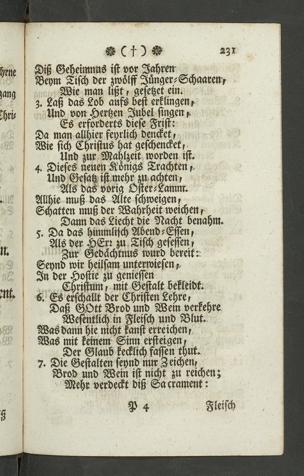 ❋ ( † ) ❋ 231
Diß Geheimnus ist vor Jahren
Beym Tisch der zwölff Jünger-Schaaren,
Wie man lißt, gesetzet ein.
3. Laß das Lob aufs best erklingen,
Und von Hertzen Jubel singen,
Es erforderts diese Frist:
Da man allhier feyrlich dencket,
Wie sich Christus hat geschencket,
Und zur Mahlzeit worden ist.
4. Dieses neuen Königs Trachten,
Und Gesatz ist mehr zu achten,
Als das vorig Oster-Lamm.
Allhie muß das Alte schweigen,
Schatten muß der Warheit weichen,
Dann das Liecht die Nacht benahm.
5. Da das himmlisch Abend-Essen,
Als der HErr zu Tisch gesessen,
Zur Gedächtnus wurd bereit:
Seynd wir heilsam unterwiesen,
In der Hostie zu geniessen
Christum, mit Gestalt bekleidt.
6. Es erschallt der Christen Lehre,
Daß GOtt Brod und Wein verkehre
Wesentlich in Fleisch und Blut.
Was dann hie nicht kanst erreichen,
Was mit keinem Sinn ersteigen,
Der Glaub kecklich fassen thut.
7. Die Gestalten seynd nur Zeichen,
Brod und Wein ist nicht zu reichen;
Mehr verdeckt diß Sacrament:
P 4 Fleisch